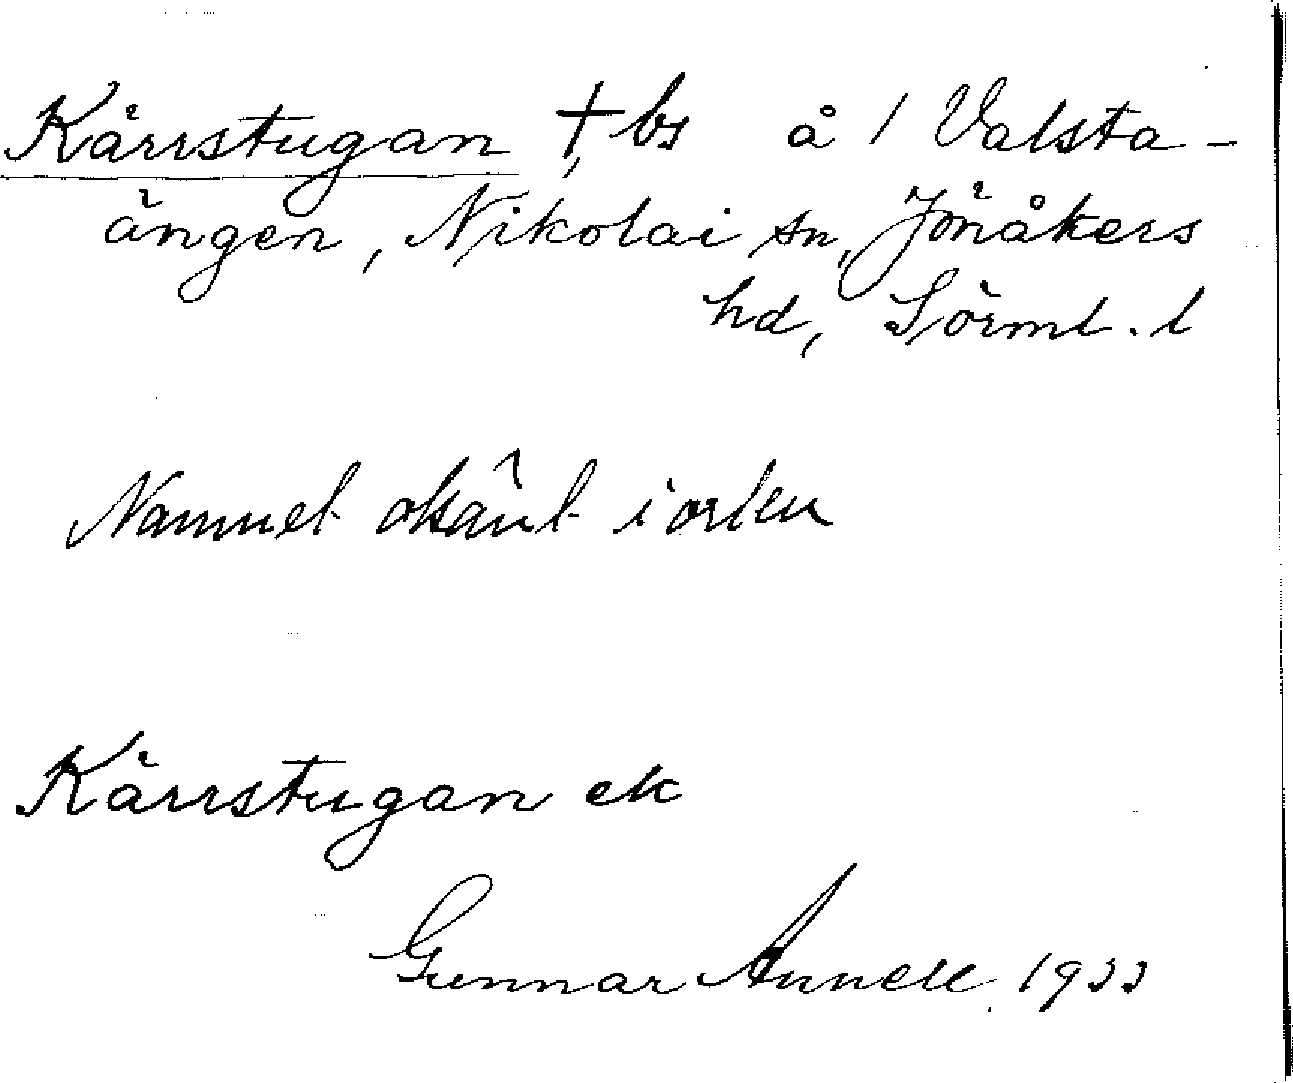 Kärrstugan †, bs å 1 Valsta-
ängen, Nikolai sn, Jönåkers
hd, Sörml. l
Namnet okänt i orten
Kärrstugan ek
Gunnar Annell 1933